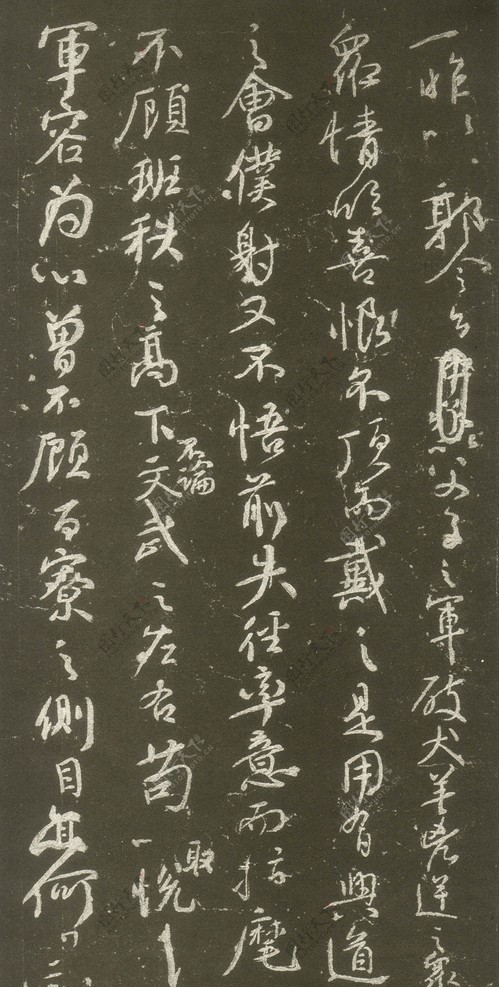 一昨以郭令公以父子之軍破犬羊兇逆之眾
眾情欣喜恨不頂而戴之是用有興道
之會僕射又不悟前失徑率意而指麾
不顧班秩之高下不論文武之左右苟以取悅
軍容為心曾不顧百寮之側目亦何